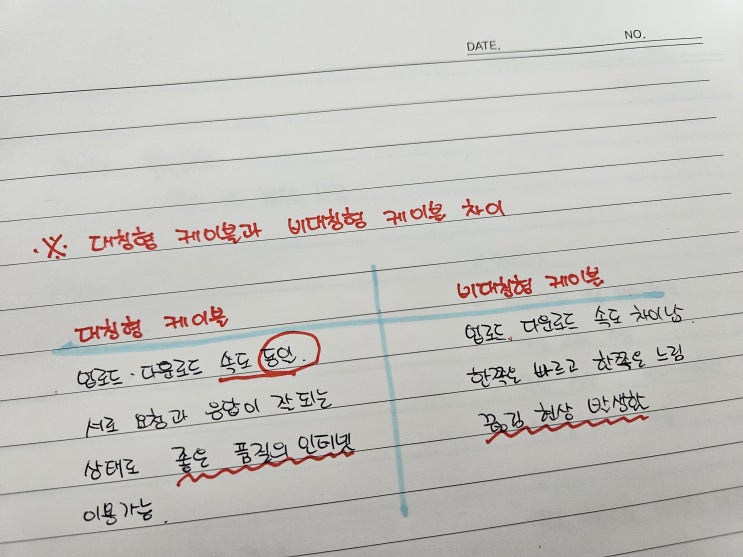 DATE.
NO.
※ 대칭형 케이블과 비대칭형 케이블 차이
대칭형 케이블
업로드·다운로드 속도 동일.
서로 요청과 응답이 잘되는
상태로 좋은 품질의 인터넷
이용가능.
비대칭형 케이블
업로드, 다운로드 속도 차이남.
한쪽은 빠르고 한쪽은 느림
끊김 현상 발생함